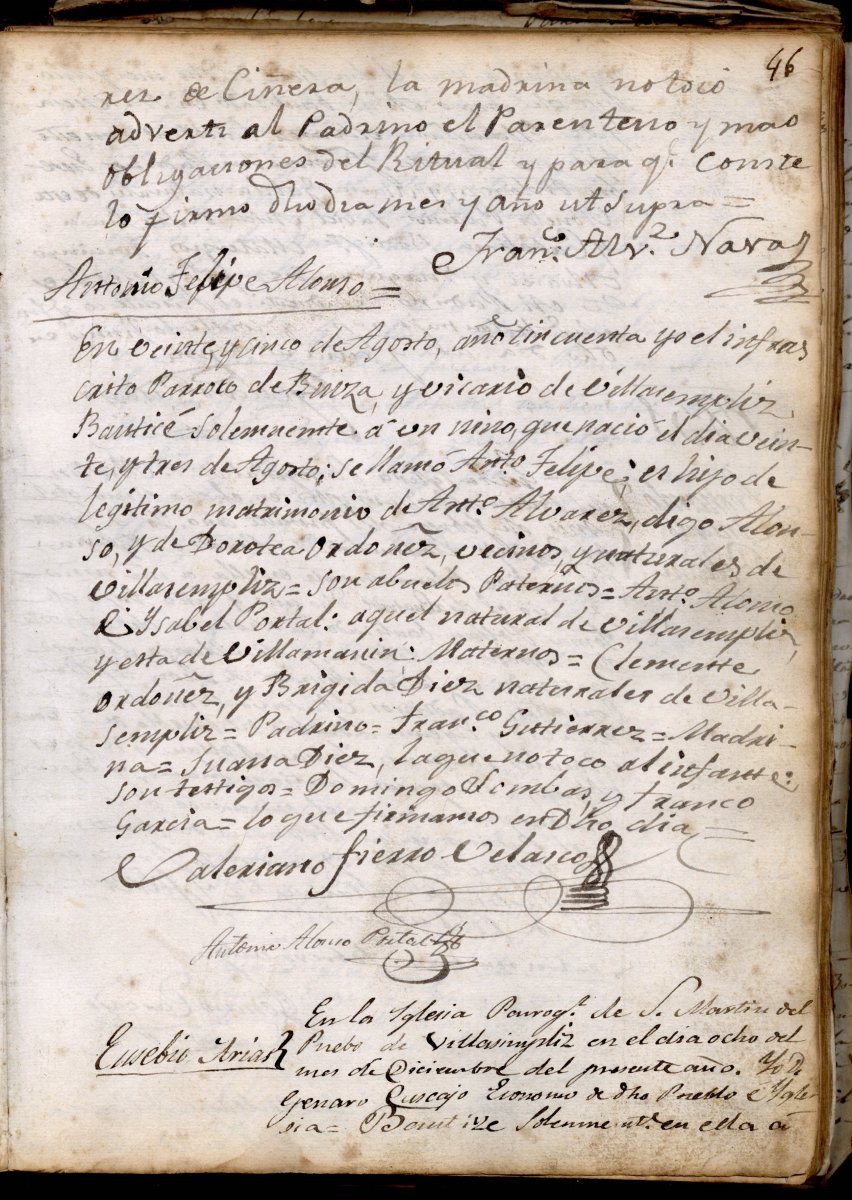 46
rez de Ciñera, la madrina no tocó
advertí al Padrino el Parentesco y mas
obligaciones del Ritual y para q.e Conste
lo firmo dho dia mes y año ut supra =
Fran.co Alv.z Nava
Antonio Felipe Alonso =
En veinte, y cinco de Agosto, año Cincuenta yo el infras
crito Parroco de Buiza, y vicario de Villasempliz,
Bauticé solemnemte á un nino, que nació el dia vein-
te, y tres de Agosto; se llamó Anto Felipe; es hijo de
legitimo matrimonio de Ant.o Alvarez, digo Alon-
so, y de Dorotea Ordoñez, vecinos, y naturales de
Villasempliz = son abuelos Paternos = Ant.o Alonso,
è Ysabel Portal: aquel natural de Villasempliz,
y esta de Villamanin: Maternos = Clemente
Ordoñez, y Brigida Diez naturales de Villa-
sempliz = Padrino = Fran.co Gutierrez = Madri-
na = Juana Diez, la que no toco al infante:
son testigos = Domingo Lombas, y Franco
Garcia = lo que firmamos en Dho dia =
Valeriano Fierro Velasco
Antonio Alonso Portal
En la Yglesia Parroq.l de S. Martin del
Eusebio Arias
Puebo de Villasimpliz en el dia ocho del
mes de Diciembre del presente año. Yo D.
Genaro Cuscajo Economo de dho Pueblo é Ygle
sia = Bautize Solemnente. en ella a